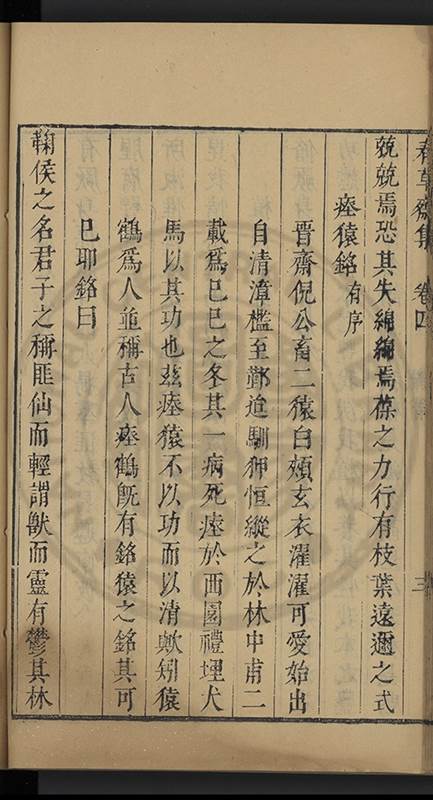 春草齋集 卷四 三
兢兢焉恐其失綿綿焉葆之力行有枝葉遠邇之式
瘞猿銘有序
晉齋倪公畜二猿白頰玄衣濯濯可愛始出
自清漳檻至鄞迨馴狎恒縱之於林中甫二
載爲己巳之冬其一病死瘞於西園禮埋犬
馬以其功也茲瘞猿不以功而以清歟矧猿
鶴爲人並稱古人瘞鶴旣有銘猿之銘其可
已耶銘曰
鞠侯之名君子之稱匪仙而輕謂獸而靈有鬱其林